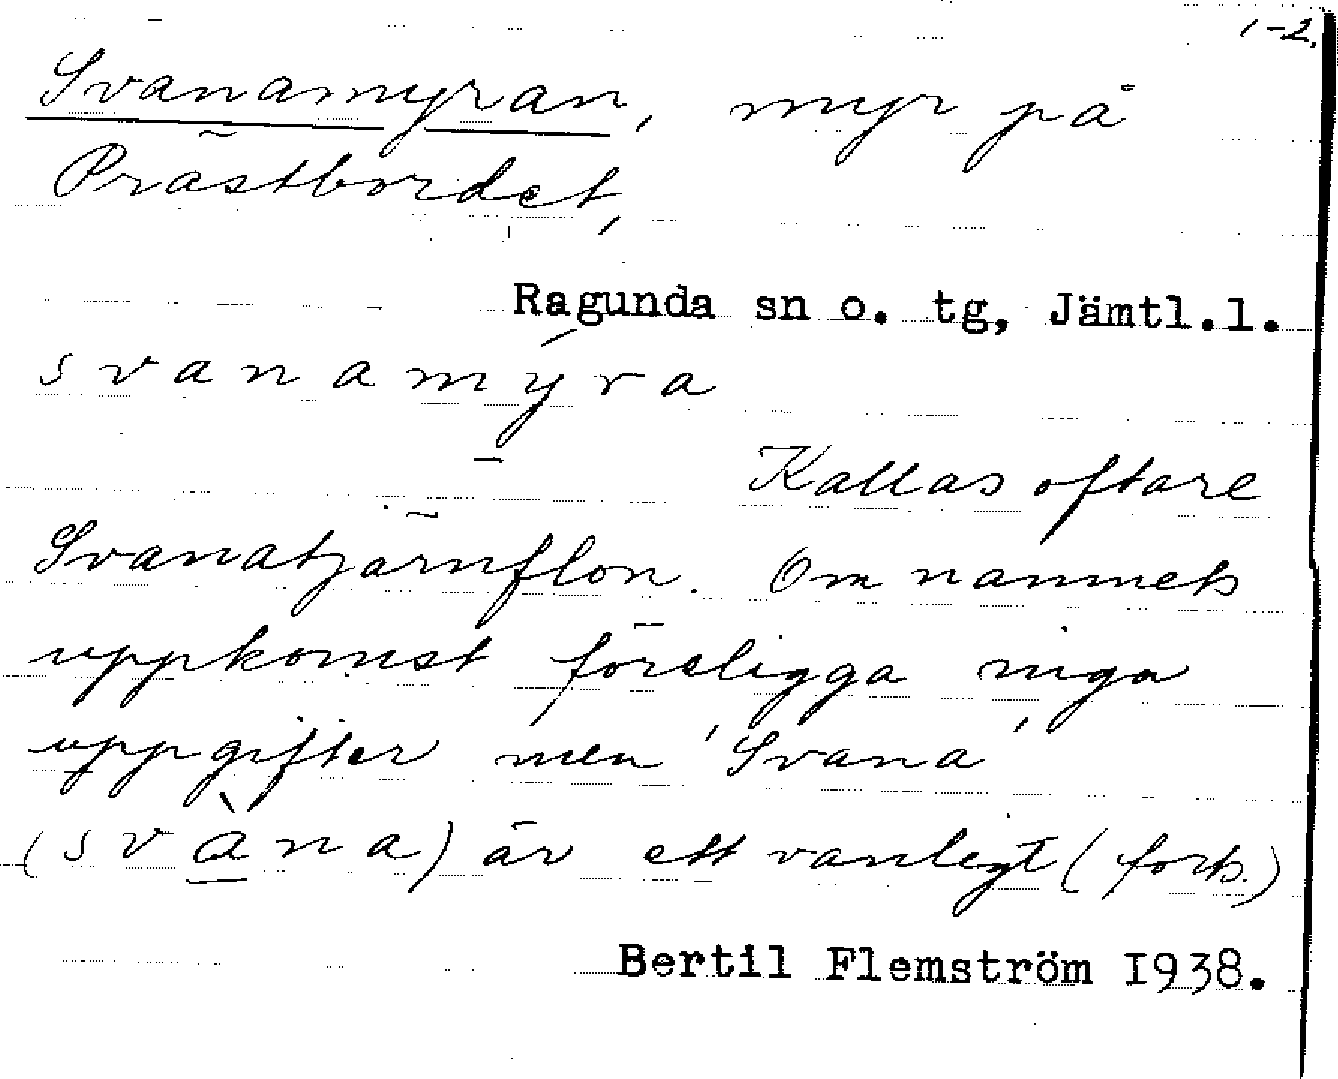 1-2.
Svanamyran, myr på
Prästbordet,
Ragunda sn o. tg, Jämtl.l.
svanamýra
Kallas oftare
Svanatjärnflon. Om namnets
uppkomst föreligga inga
uppgifter men 'Svana'
(svàna) är ett vanligt (forts.)
Bertil Flemström 1938.